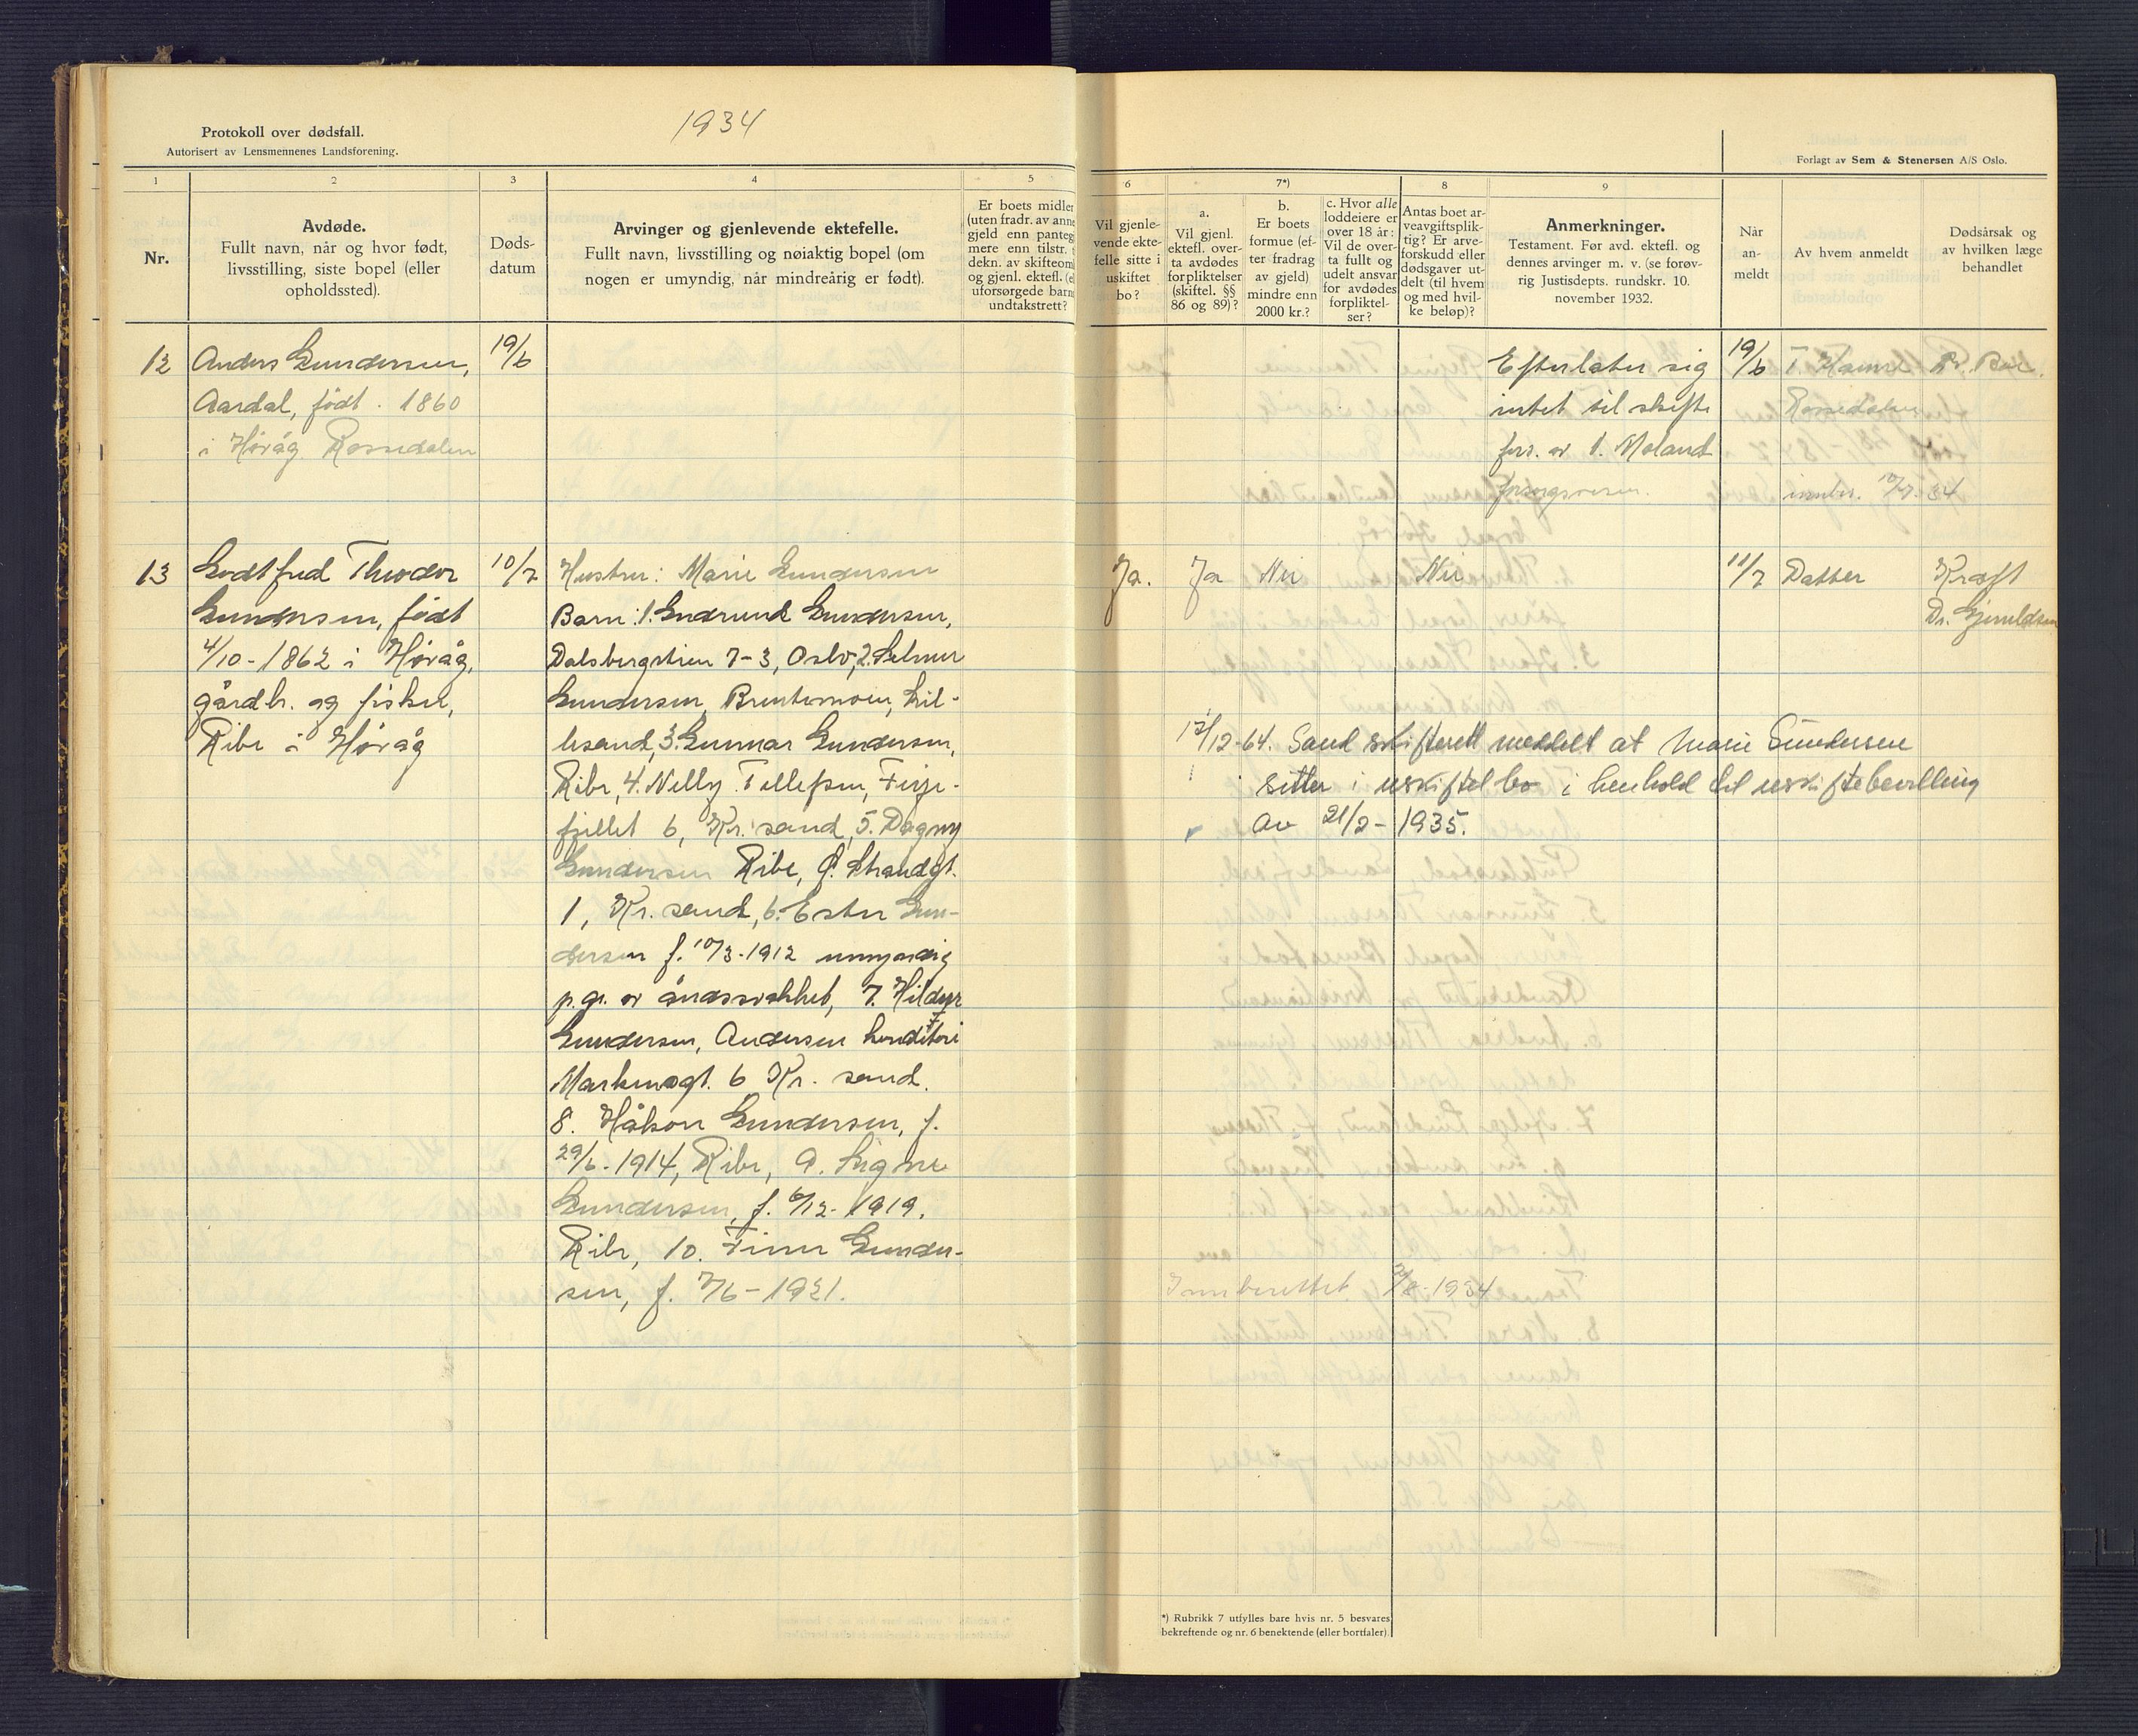 Protokoll over dødsfall.
Autorisert av Lensmennenes Landsforening.
1934
Forlagt av Sem & Stenersen A/S Oslo.
1
2
3
4
5
6
7*)
8
9
Nr.
Avdøde.
Fullt navn, når og hvor født,
livsstilling, siste bopel (eller
opholdssted).
Døds-
datum
Arvinger og gjenlevende ektefelle.
Fullt navn, livsstilling og nøiaktig bopel (om
nogen er umyndig, når mindreårig er født).
Er boets midler
(uten fradr. av anne
gjeld enn panteg
mere enn tilstr. t
dekn. av skifteom
og gjenl. ektefl. (el
uforsørgede barn
undtakstrett?
Vil gjenle-
vende ekte-
felle sitte i
uskiftet
bo?
a.
Vil gjenl.
ektefl. over-
ta avdødes
forpliktelser
(skiftel. §§
86 og 89)?
b.
Er boets
formue (ef-
ter fradrag
av gjeld)
mindre enn
2000 kr.?
c. Hvor alle
loddeiere er
over 18 år:
Vil de over-
ta fullt og
udelt ansvar
for avdødes
forpliktel-
ser?
Antas boet ar-
veavgiftsplik-
tig? Er arve-
forskudd eller
dødsgaver ut-
delt (til hvem
og med hvil-
ke beløp)?
Anmerkninger.
Testament. Før avd. ektefl. og
dennes arvinger m. v. (se forøv-
rig Justisdepts. rundskr. 10.
november 1932.
Når
an-
meldt
Av hvem anmeldt
Dødsårsak og
av hvilken læge
behandlet
12
Anders Gundersen,
Aardal, født 1860
i Høvåg Rossedalen
19/6
Efterlater sig
intet til skifte
fors. av V. Moland
forsorgsvesen.
19/6
T. Hamre
Rossedalen
innber. 10/7. 34
13
Godtfred Theodor
Gundersen, født
4/10-1862 i Høvåg,
gårdbr. og fisker,
Ribe i Høvåg
10/7
Hustru: Marie Gundersen
Barn: 1. Gudrund Gundersen,
Dalsbergstien 7-3, Oslo, 2. Selmer
Gundersen, Brentemoen, Lil-
lesand, 3. Gunnar Gundersen,
Ribe, 4. Nelly Tellefsen, Ferje-
fjellet 6, Kr. sand, 5. Dagny
Gundersen Ribe, Ø. Strandgt.
1, Kr. sand, 6. Ester Gun-
dersen f. 10/3-1912 umyndig
p.gr. av åndssvakhet, 7. Hildur
Gundersen, Andersen konditori
Markensgt. 6 Kr. sand.
8. Håkon Gundersen, f.
29/6-1914, Ribe, 9. Signe
Gundersen, f. 6/12-1919,
Ribe, 10. Finn Gunder-
sen, f. 7/6-1921.
Ja.
Ja
Nei
Nei
11/7
Datter
Kræft
Dr. Gjeruldsen
12/12-64. Sand skifterett meddelt at Marie Gundersen
sitter i uskiftet bo i henhold til uskiftebevilling
av 21/2-1935.
Innberettet /8-1934
*) Rubrikk 7 utfylles bare hvis nr. 5 besvares
bekreftende og nr. 6 benektende (eller bortfaler).